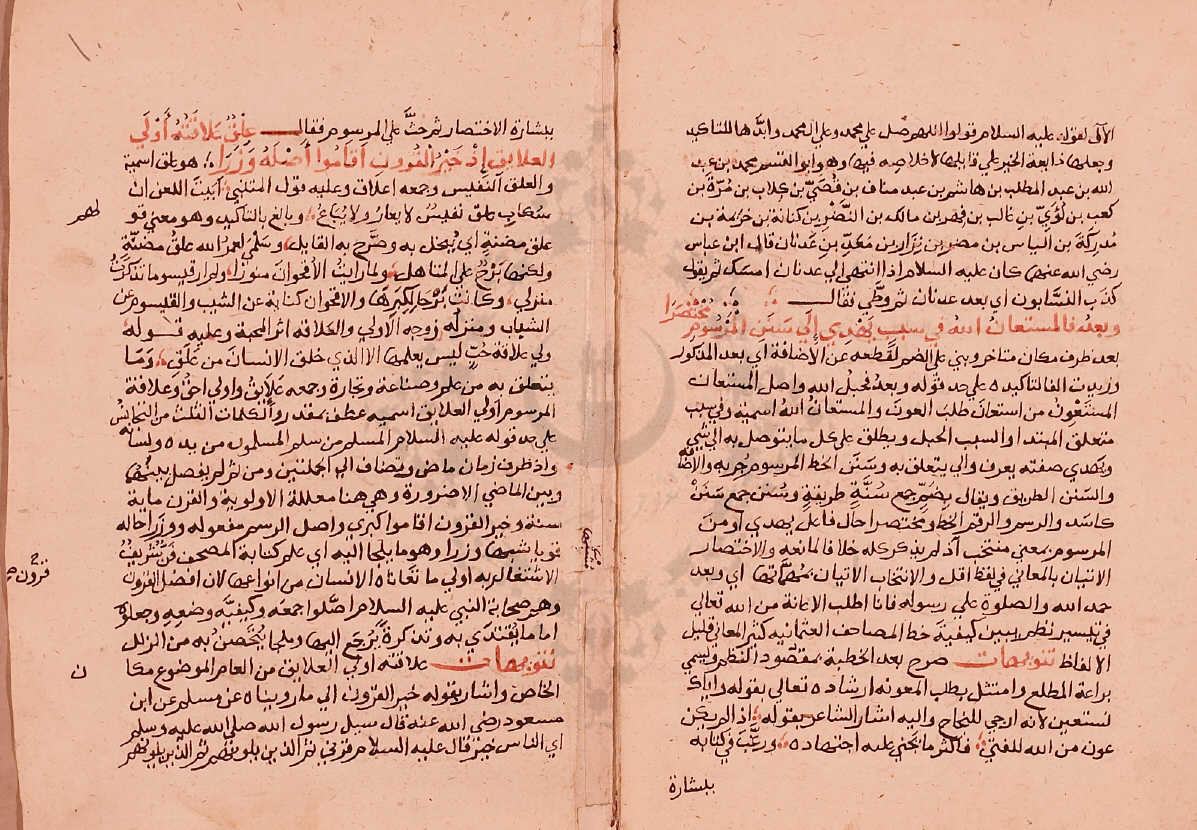 الآل لقوله عليه السلام قولوا اللهم صل على محمد وعلى آل محمد وابدَها للتاكيد
وجعلها ذابعة الخبر على قايلها لاخلاصه فيها وهو ابو القسم محمد بن عبد
الله بن عبد المطلب بن هاشم بن عبد مناف بن قُصَيّ بن كلاب بن مُرّة بن
كعب بن لؤيّ بن غالب بن فهر بن مالك بن النَّضْر بن كنانة بن خزيمة بن
مُدركَة بن الياس بن مضر بن نِزار بن مَعَدّ بن عَدْنان قال ابن عباس
رضي الله عنهما كان عليه السلام اذا انتهى الى عدنان امسك ثم يقول
كذب النسّابون اي بعد عدنان ثم وطّى فقال
وبعدُ فالمستعانُ الله في سبب يهدي إلى سَنَن المرسوم مختصرا
بعد ظرف مكان متاخر وبني على الضم لقطعه عن الاضافة اي بعد المذكور
وزيدت الفا لتاكيده على حد قوله وبعدُ فحبل الله واصل المستعان
المستَعْوَن من استعان طلب العون والمستعانُ اللهُ اسمية وفي سبب
متعلق المبتدا والسبب الحبل ويطلق على كل ما يتوصل به الى شي
ويهدي صفته يعرف والى يتعلق به وسَنَن الخط المرسوم جُر به والاضافه
والسَّنَن الطريق ويقال بضمّ جمع سُنَّةٍ طريقةٍ وسُنَن جمع سَنَنْ
كاسَد والرسم والرقم الخط ومختصرا حال فاعل يهدي او من
المرسوم بمعنى منتخب اذ لم يذكر كله خلافا لمانعه والاختصار
الاتيان بالمعاني في لفظ اقل والانتخاب الاتيان بمهماتها اي وبعد
حمد الله والصلوة على رسوله فانا اطلب الاعانة من الله تعالى
في تيسير نظم يبين كيفية خط المصاحف العثمانيه كثير المعاني قليل
الالفاظ تنويهات صرح بعد الخطبة بمقصود النظم ويسمى
براعة المطلع وامتثل بطلب المعونه ارشاده تعالى بقوله واياك
نستعين لانه ارجى للنجاح واليه اشار الشاعر بقوله اذا لم يكن
عون من الله للفتى فاكثر ما يجني عليه اجتهاده ورغّب في كتابه
ببشارة
ببشارة الاختصار ثم حثَّ على المرسوم فقال عِلْقٌ عَلاقَتُهُ أَوْلَى
العلايق إذ خَيْرُ القُرون أقامُوا أَصْلَهُ وَزَرَا هو علق اسمية
والعلق النفيس وجمعه اعلاق وعليه قول المتنبي ابيتَ اللعن ان
سَكابِ علق نفيسٌ لا يعارُ ولا يُباعُ وبالغ بالتاكيد وهو معنى قو
لهم
علق مضنة اي يُبخل به وصرَّح به القايل وسلمى لعمرُ الله علقُ مضنّةٍ
ولكنها
الشباب ومنزله زوجه الاولى والعَلاقة اثر المحبة وعليه قوله
ولي علاقة حُبٍّ ليس يعلمها الا الذي خلق الانسان من علق وَمَا
يتعلق به من علم وصناعة وتجارة وجمعه علايق واولى احقُّ وعلاقة
المرسوم اولى العلايق اسميه عطف بمقدر والكلمات الثلث من
على حد قوله عليه السلام المسلم من سلم المسلمون من يده ولسانه
واذ ظرف زمان ماض ويضاف الى الجملتين ومن ثم لم يفصل بينها
وبين الماضي الا ضرورة وهي هنا معللة الاولوية والقرن ماية
سنة وخير القرون اقاموا كبرى واصل الرسم مفعوله ووزرا حاله
قويا شبيها وزرا وهو ما يلجا اليه اي علم كتابة المصحف فنٌّ شريفٌ
الاشتغال به اولى ما تعاناه الانسان من انواعها لان افضل القرون
قرون
وهم صحابة النبي عليه السلام اصَّلوا جمعه وكيفيّة وضعه وجعلوه
اماما يُقتدى به وتذكرةً يُرجع اليها وملجا يُتحصن به من الزلل
تنويهات علاقته اولى العلايق من العام الموضوع مكا
ن
الخاص واشار بقوله خير القرون الى ما رويناه عن مسلم عن ابن
مسعود رضي الله عنه قال سيل رسول الله صلى الله عليه وسلم
اي الناس خير قال عليه السلام قرني ثم الذين يلونهم ثم الذين يلونهم